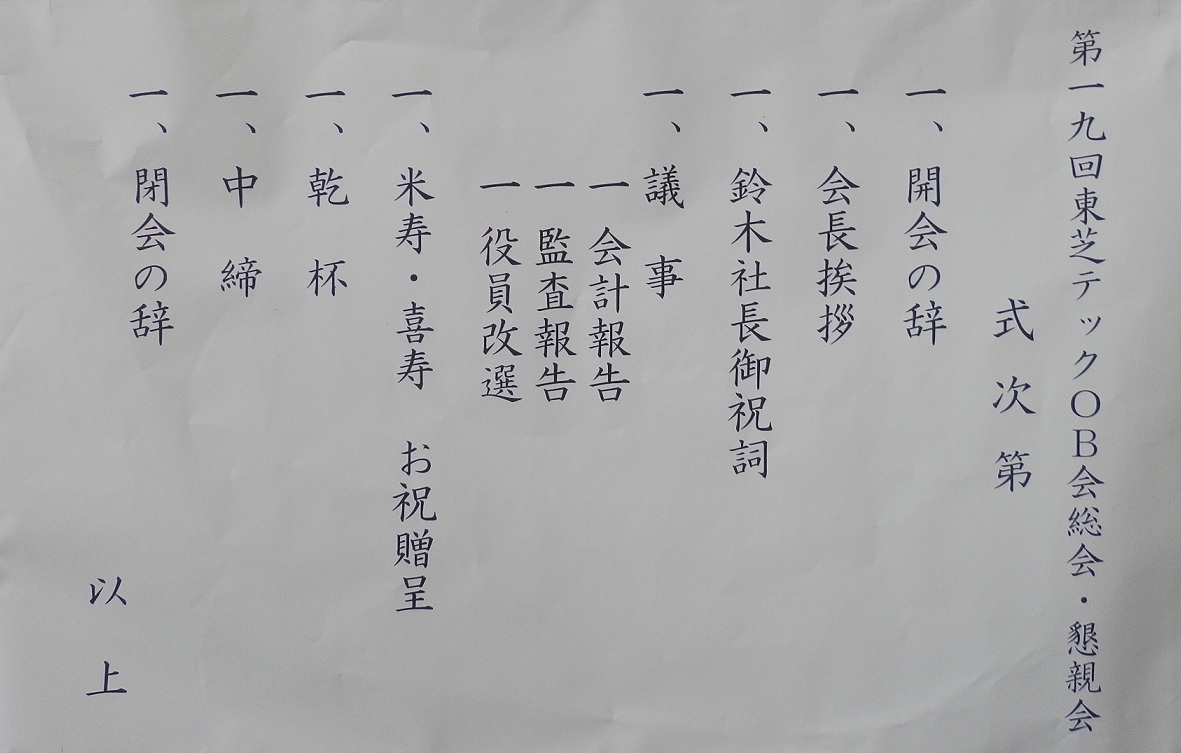 第一九回東芝テックOB会総会・懇親会
式次第
一、開会の辞
一、会長挨拶
一、鈴木社長御祝詞
一、議事
一会計報告
一監査報告
一役員改選
一、米寿・喜寿　お祝贈呈
一、乾杯
一、中締
一、閉会の辞
以上